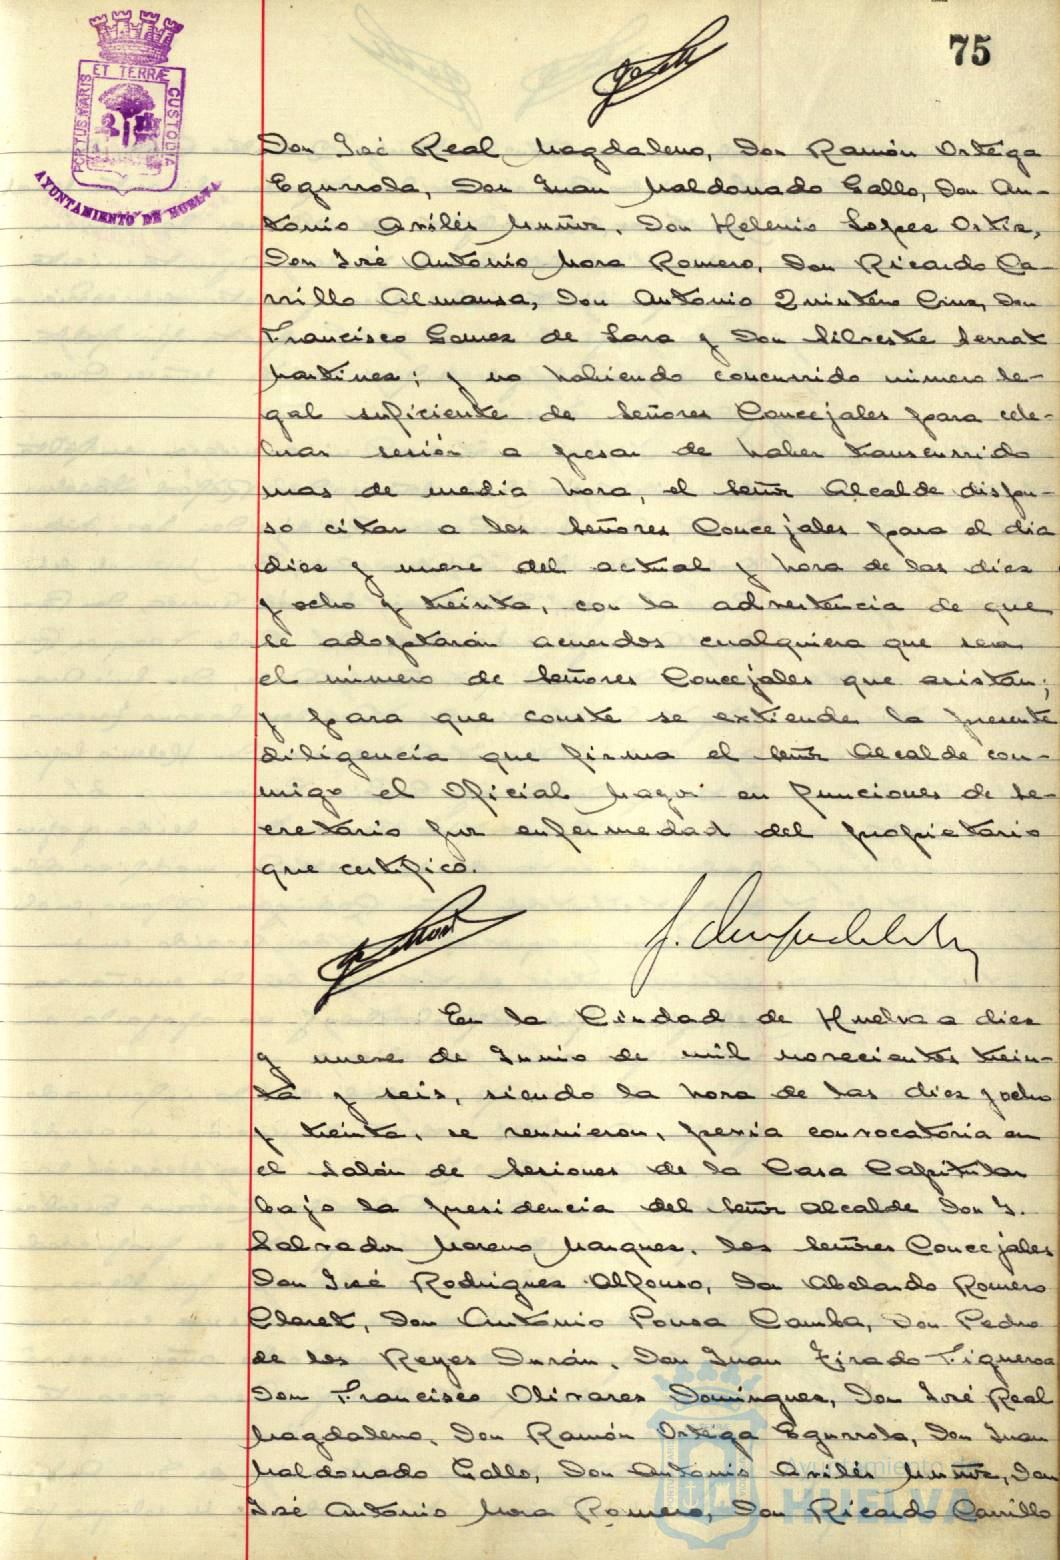 75
PORTUS MARIS ET TERRÆ CUSTODIA
AYUNTAMIENTO DE HUELVA
Don José Real Magdaleno, Don Ramón Ortega
Egurrola, Don Juan Maldonado Gallo, Don An-
tonio Avilés Muñoz, Don Helenio Lopez Ortiz,
Don José Antonio Mora Romero, Don Ricardo Ca-
rrillo Almansa, Don Antonio Quintero Cruz, Don
Francisco Gomez de Lara y Don Silvestre Serrat
Martinez; y no habiendo concurrido número le-
gal suficiente de Señores Concejales para cele-
brar sesión a pesar de haber transcurrido
mas de media hora, el Señor Alcalde dispu-
so citar a los Señores Concejales para el dia
diez y nueve del actual y hora de las diez
y ocho y treinta, con la advertencia de que
se adoptarán acuerdos cualquiera que sea
el número de Señores Concejales que asistan;
y para que conste se extiende la presente
diligencia que firma el Señor Alcalde con-
migo el Oficial Mayor en funciones de Se-
cretario por enfermedad del propietario
que certifico.
En la Ciudad de Huelva a diez
y nueve de Junio de mil novecientos trein-
ta y seis, siendo la hora de las diez y ocho
y treinta, se reunieron, previa convocatoria en
el Salón de Sesiones de la Casa Capitular
bajo la presidencia del Señor Alcalde Don J.
Salvador Moreno Marquez, los Señores Concejales
Don José Rodriguez Alfonso, Don Abelardo Romero
Claret, Don Antonio Pousa Camba, Don Pedro
de los Reyes Durán, Don Juan Tirado Figueroa
Don Francisco Olivares Dominguez, Don José Real
Magdaleno, Don Ramón Ortega Egurrola, Don Juan
Maldonado Gallo, Don Antonio Avilés Muñoz, Don
José Antonio Mora Romero, Don Ricardo Carrillo
Ayuntamiento de
HUELVA